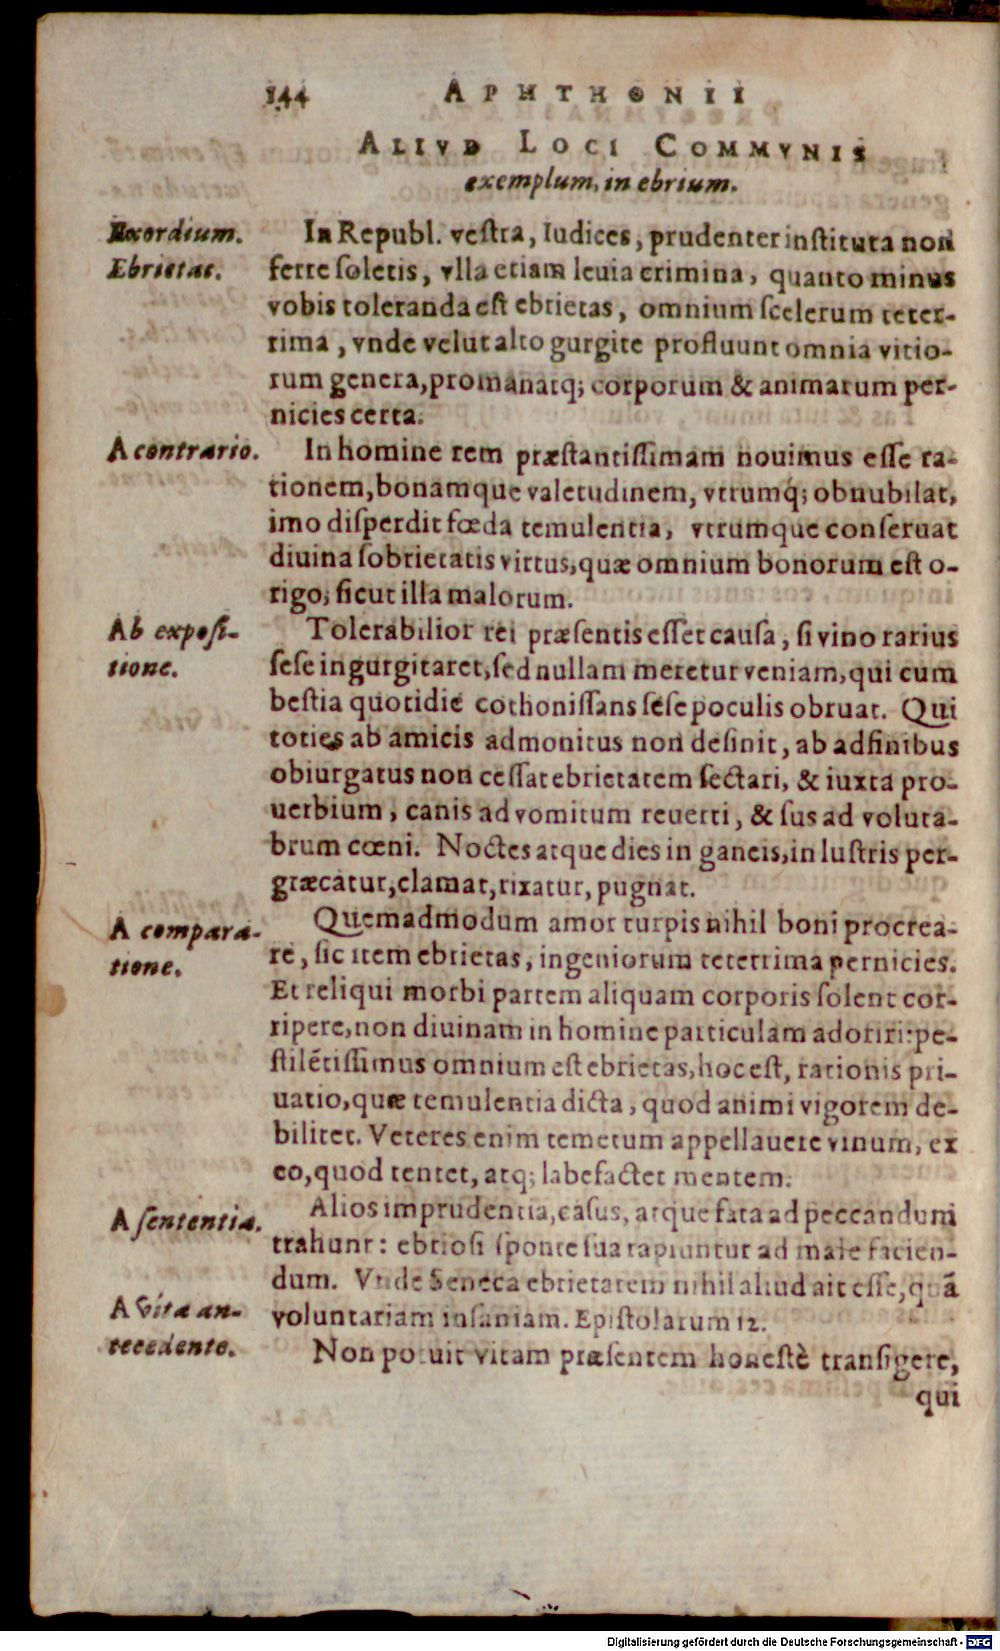 144 APHTHONII
ALIVD LOCI COMMVNIS
exemplum, in ebrium.
Exordium.
Ebrietas.
In Republ. vestra, Iudices, prudenter instituta non
ferre soletis, vlla etiam leuia crimina, quanto minus
vobis toleranda est ebrietas, omnium scelerum teter-
rima, vnde velut alto gurgite profluunt omnia vitio-
rum genera, promanatq; corporum & animarum per-
nicies certa.
A contrario.
In homine rem præstantissimam nouimus esse ra-
tionem, bonamque valetudinem, vtrumq́; obnubilat,
imo disperdit fœda temulentia, vtrumque conseruat
diuina sobrietatis virtus, quæ omnium bonorum est o-
rigo, sicut illa malorum.
Ab exposi-
tione.
Tolerabilior rei præsentis esset causa, si vino rarius
sese ingurgitaret, sed nullam meretur veniam, qui cum
bestia quotidie cothonissans sese poculis obruat. Qui
toties ab amicis admonitus non desinit, ab adfinibus
obiurgatus non cessat ebrietatem sectari, & iuxta pro-
uerbium, canis ad vomitum reuerti, & sus ad voluta-
brum cœni. Noctes atque dies in ganeis, in lustris per-
græcatur, clamat, rixatur, pugnat.
A compara-
tione.
Quemadmodum amor turpis nihil boni procrea-
re, sic item ebrietas, ingeniorum teterrima pernicies.
Et reliqui morbi partem aliquam corporis solent cor-
ripere, non diuinam in homine particulam adoriri: pe-
stilētissimus omnium est ebrietas, hoc est, rationis pri-
uatio, quæ temulentia dicta, quod animi vigorem de-
bilitet. Veteres enim temetum appellauere vinum, ex
eo, quod tentet, atq; labefactet mentem.
A sententia.
Alios imprudentia, casus, atque fata ad peccandum
trahunt: ebriosi sponte sua rapiuntur ad male facien-
dum. Vnde Seneca ebrietatem nihil aliud ait esse, quā
voluntariam insaniam. Epistolarum 12.
A vita an-
tecedente.
Non potuit vitam præsentem honestè transigere,
qui
Digitalisierung gefördert durch die Deutsche Forschungsgemeinschaft - DFG